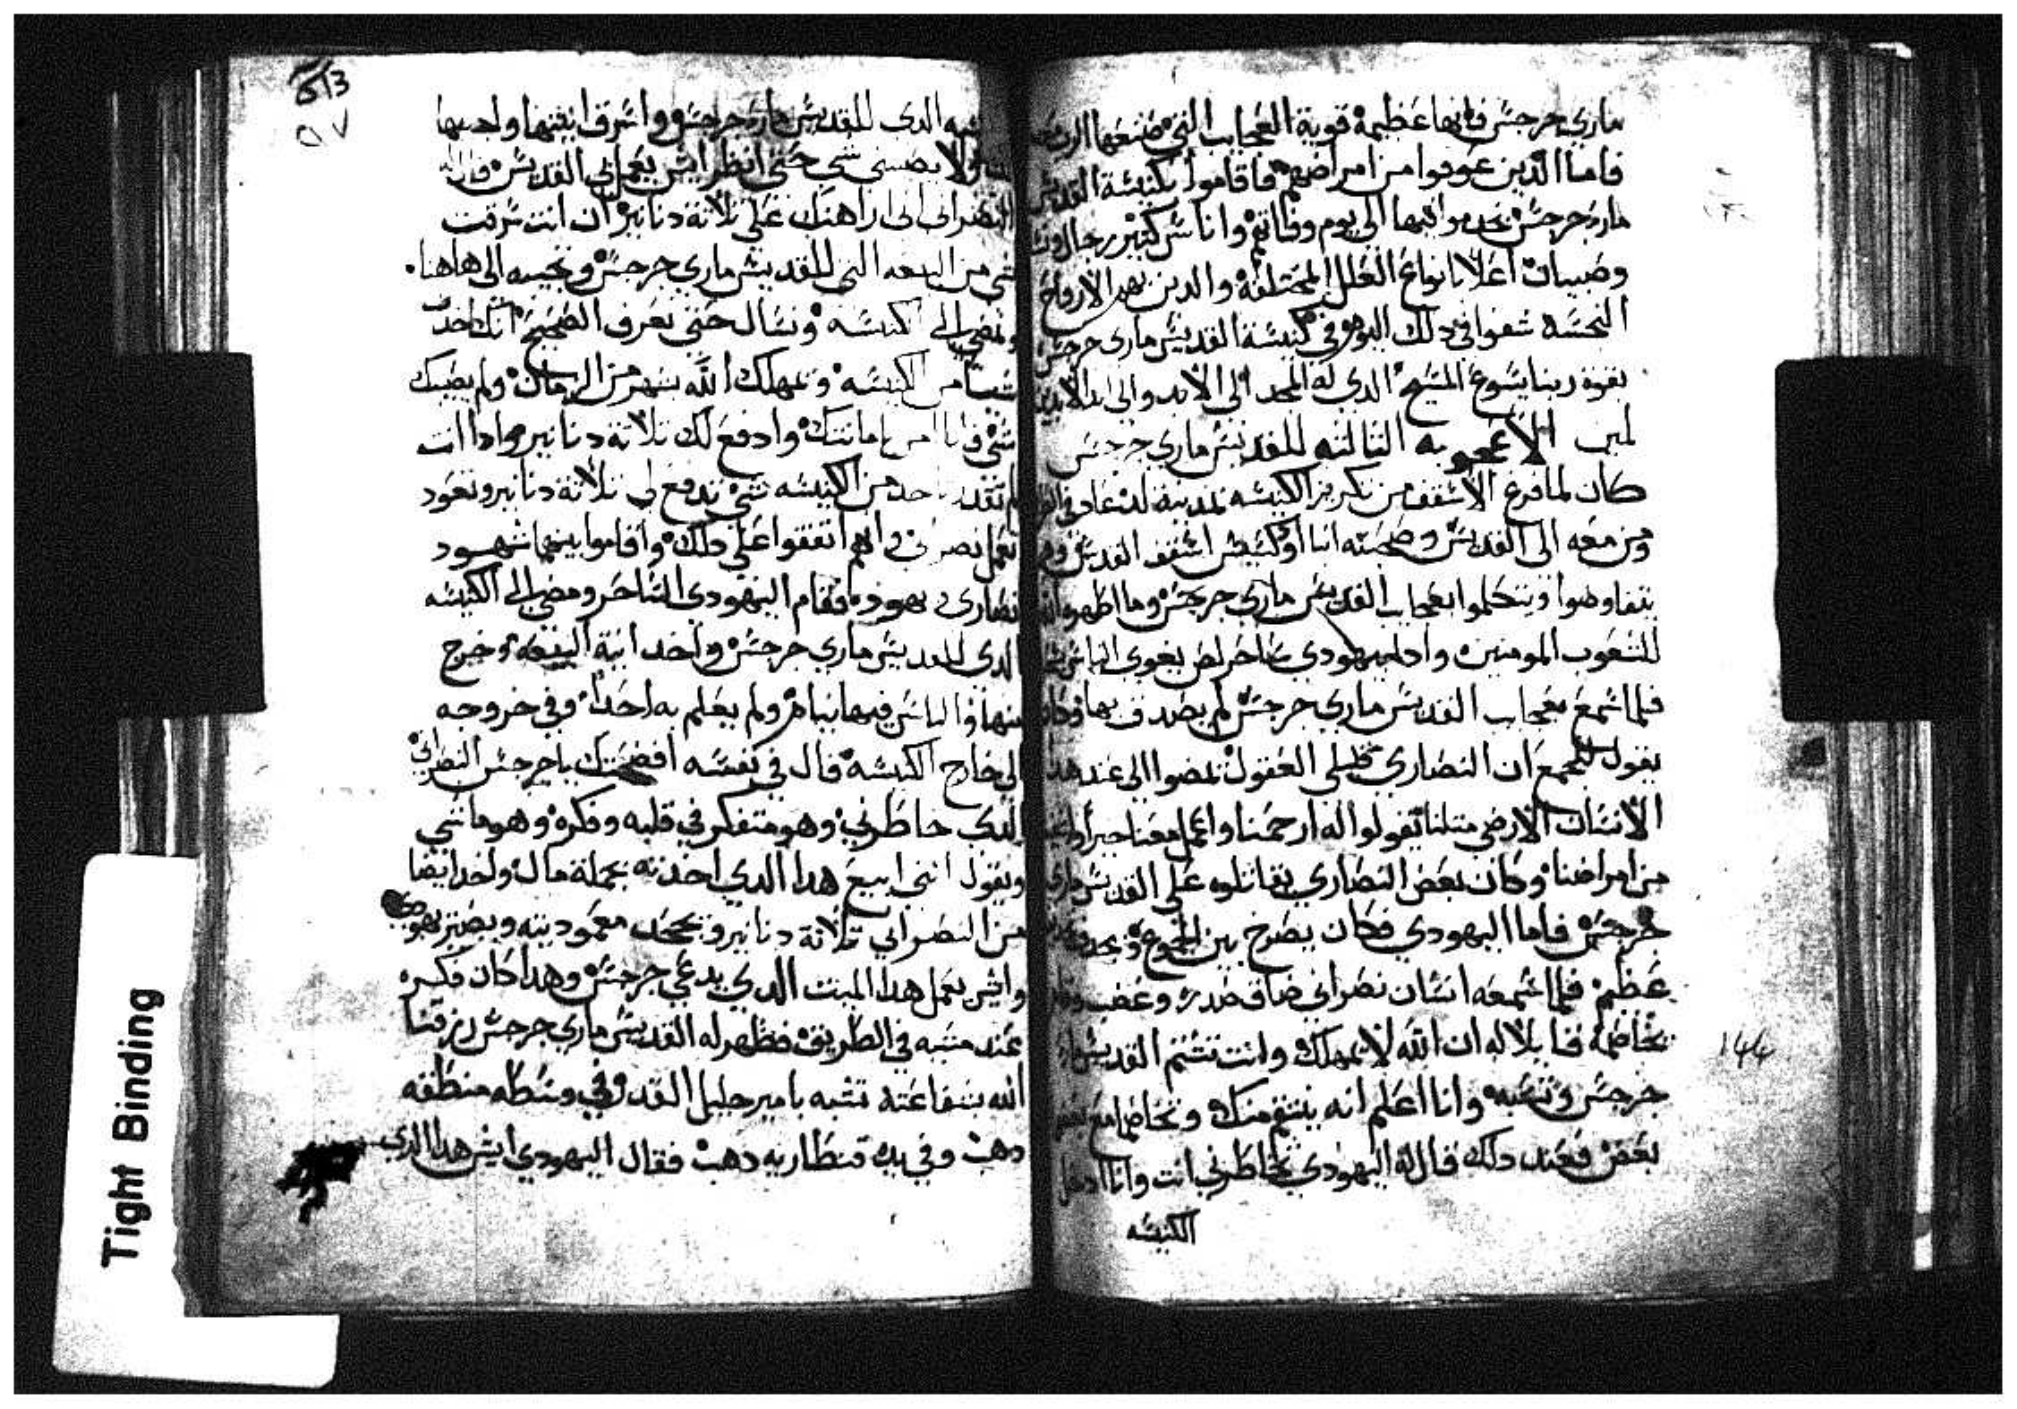 ماري جرجس فانها عظيمة قوية العجايب التي صنعها الرب
فاما الذين عوفوا من امراضهم فاقاموا بكنيسة القديس
ماري جرجس يخدموا فيها الى يوم وفاتهم واناس كثير رجال ونسا
وصبيان اعلا بانواع العلل المختلفة والدين بهم الارواح
النجسه شفوا في دلك اليوم في كنيسة القديس ماري جرجس
بقوة ربنا يسوع المسيح الدي له المجد الى الابد والى ابد الابدين
امين الاعجوبه التالته للقديس ماري جرجس
كان لما فرغ الاسقف من تكريز الكنيسه بمدينة لد عاد في
ومن معه الى القدس وصحبته انبا اوكسيس اسقف القدس وهم
يتفاوضوا ويتكلموا بعجايب القديس ماري جرجس وما اظهر الله
للشعوب المومنين وادا بيهودي ساحر لص يغوى الناس
فلما سمع بعجايب القديس ماري جرجس لم يصدق بها وكان
يقول للجمع ان النصاري قليلي العقول يمضوا الى عند هدا
الانسان الارضي متلنا يقولوا له ارحمنا واعمل معنا خيرا
من امراضنا وكان بعض النصاري يقاتلوه على القديس ماري
جرجس فاما اليهودي فكان يصرخ بين الجموع
عظم فلما سمعه انسان نصراني ضاق صدره وغضب
يخاصمه قايلا له ان الله لا يمهلك وانت تشتم القديس ماري
جرجس وتسبه وانا اعلم انه ينتقم منك وتخاصما مع
بعض فعند دلك قال له اليهودي تخاطرني انت وانا ادخل
الكنيسه
الدى للقديس ماري جرجس واسرق انيتها واجيبها
ولا يصيبني شي حتى انظر ايش يعمل بي القديس فقال له
النصراني انى اراهنك على تلاتة دنانير ان انت سرقت
شي من البيعه التى للقديس ماري جرجس وتجيبه الى هاهنا
ونمضي الى الكنيسه ونسال حتى نعرف الصحيح انك اخدت
شيا من الكنيسه ويمهلك الله شهر من الزمان ولم يصيبك
شي فانا امن بامانتك وادفع لك تلاتة دنانير وادا انت
لم تقدر تاخد من الكنيسه شي تدفع لي تلاتة دنانير وتعود
تعمل نصراني وانهم اتفقوا على دلك واقاموا بينهما شهود
نصارى ويهود فقام اليهودي الساحر ومضى الى الكنيسه
الدى للقديس ماري جرجس واخد انية البيعه وخرج
منها والناس فيها نيام ولم يعلم به احدا وفي خروجه
الى خارج الكنيسه قال في نفسه افضحتك ياجرجس النصراني
الدى خاطرني وهو متفكر في قلبه وفكره وهو ماشي
ويقول انني ابيع هدا الدي اخدته بجملة مال واخد ايضا
من النصراني تلاتة دنانير ويجحد معموديته ويصير يهودي
وايش يعمل هدا الميت الدي يدعي جرجس وهدا كان فكره
عند مشيه في الطريق فظهر له القديس ماري جرجس رزقنا
الله شفاعته تشبه بامير جليل القدر وفي وسطه منطقه
دهب وفي يده قنطاريه دهب فقال اليهودي ايش هدا الدي
Tight Binding